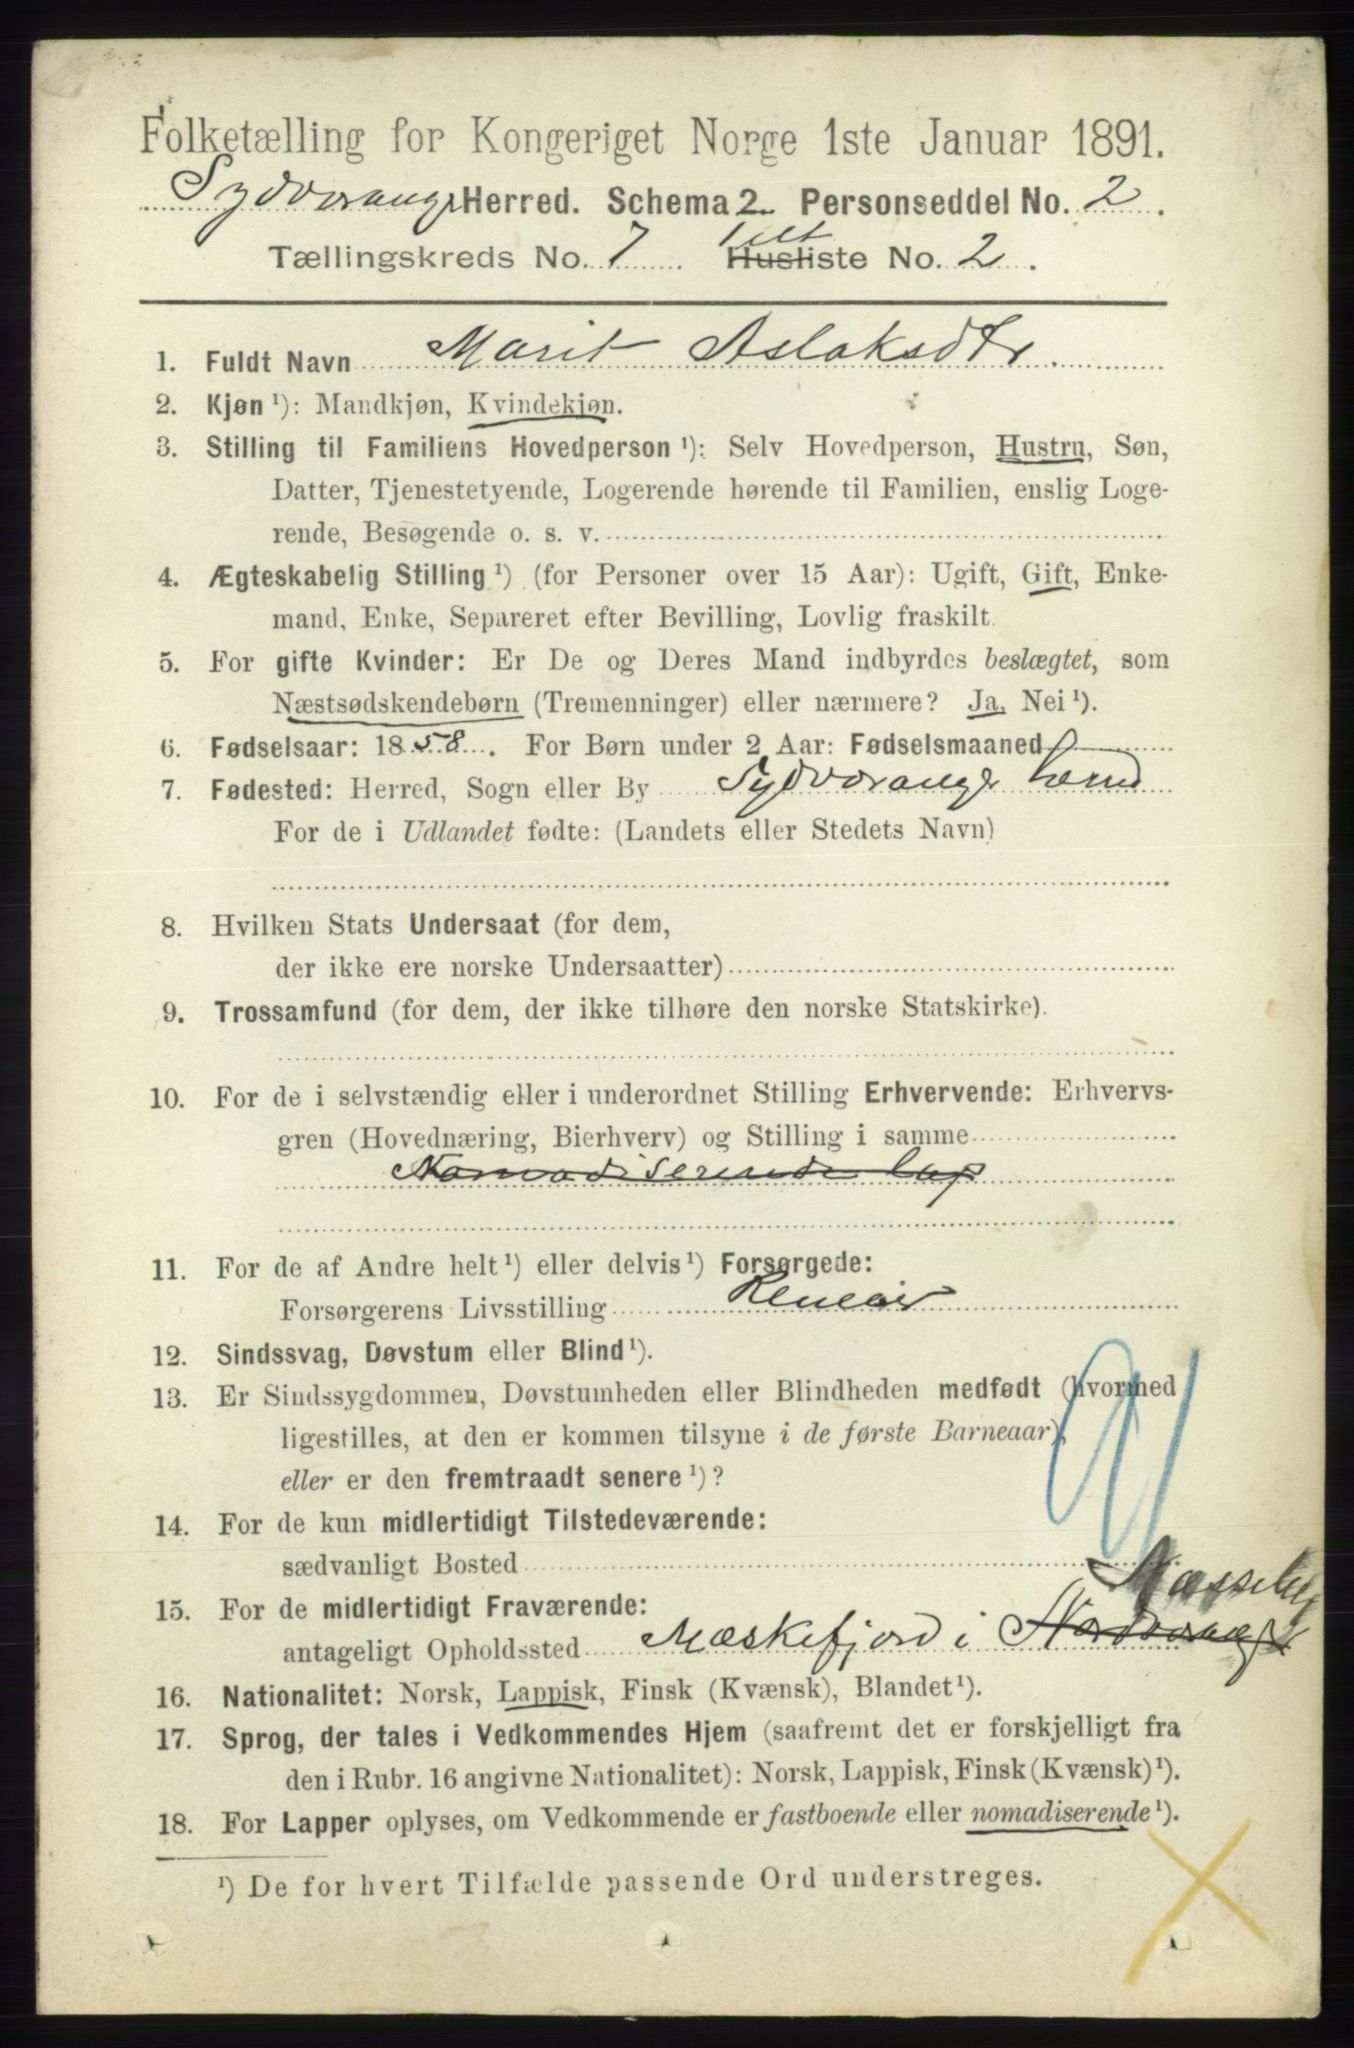 Folketælling for Kongeriget Norge 1ste Januar 1891.
Sydvaranger Herred. Schema 2. Personseddel No. 2.
Tællingskreds No. 7 Husliste No. 2.
Telt
1. Fuldt Navn Marit Aslaksdtr.
2. Kjøn ¹): Mandkjøn, Kvindekjøn.
3. Stilling til Familiens Hovedperson ¹): Selv Hovedperson, Hustru, Søn,
Datter, Tjenestetyende, Logerende hørende til Familien, enslig Loge-
rende, Besøgende o. s. v.
4. Ægteskabelig Stilling ¹) (for Personer over 15 Aar): Ugift, Gift, Enke-
mand, Enke, Separeret efter Bevilling, Lovlig fraskilt.
5. For gifte Kvinder: Er De og Deres Mand indbyrdes beslægtet, som
Næstsødskendebørn (Tremenninger) eller nærmere? Ja, Nei ¹).
6. Fødselsaar: 1858. For Børn under 2 Aar: Fødselsmaaned
7. Fødested: Herred, Sogn eller By Sydvaranger herred
For de i Udlandet fødte: (Landets eller Stedets Navn)
8. Hvilken Stats Undersaat (for dem,
der ikke ere norske Undersaatter)
9. Trossamfund (for dem, der ikke tilhøre den norske Statskirke).
10. For de i selvstændig eller i underordnet Stilling Erhvervende: Erhvervs-
gren (Hovednæring, Bierhverv) og Stilling i samme
Nomadiserende Lap
11. For de af Andre helt ¹) eller delvis ¹) Forsørgede:
Forsørgerens Livsstilling Reneier
12. Sindssvag, Døvstum eller Blind ¹).
13. Er Sindssygdommen, Døvstumheden eller Blindheden medfødt (hvormed
ligestilles, at den er kommen tilsyne i de første Barneaar),
eller er den fremtraadt senere ¹)?
14. For de kun midlertidigt Tilstedeværende:
sædvanligt Bosted
Næsseby
15. For de midlertidigt Fraværende:
antageligt Opholdssted Mæskefjord i Nordvaranger
16. Nationalitet: Norsk, Lappisk, Finsk (Kvænsk), Blandet ¹).
17. Sprog, der tales i Vedkommendes Hjem (saafremt det er forskjelligt fra
den i Rubr. 16 angivne Nationalitet): Norsk, Lappisk, Finsk (Kvænsk) ¹).
18. For Lapper oplyses, om Vedkommende er fastboende eller nomadiserende ¹).
¹) De for hvert Tilfælde passende Ord understreges.